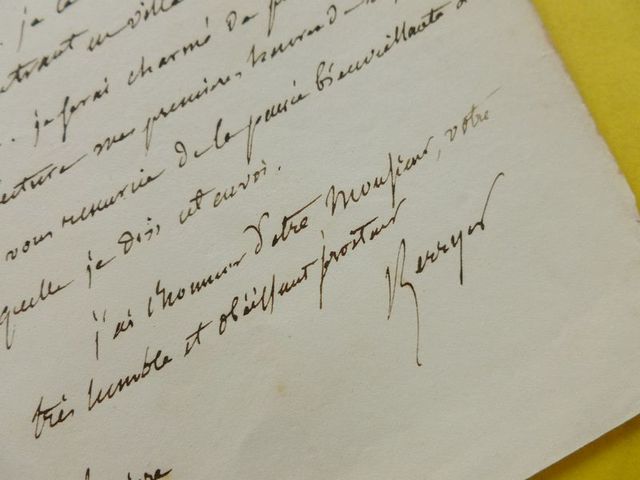 je
entrant en ville
je serai charmé de
lecture mes premières heures de
vous remercie de la pensée bienveillante
quelle je dois cet envoi.
j'ai l'honneur d'être, Monsieur, votre
très humble et obéissant
Berryer